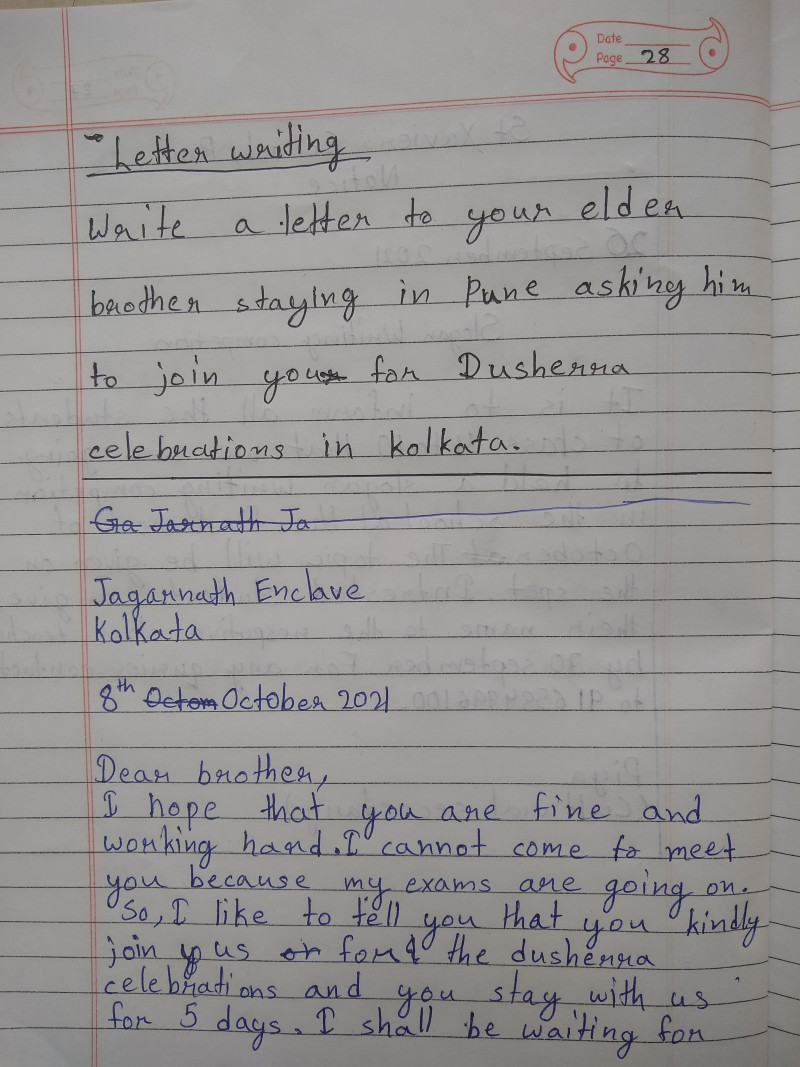 Date
Page 28
Letter writing
Write a letter to your elder
brother staying in Pune asking him
to join your for Dusherra
celebrations in kolkata.
Ga Jarnath Ja
Jagannath Enclave
Kolkata
8th Octom October 2021
Dear brother,
I hope that you are fine and
working hard. I cannot come to meet
you because my exams are going on.
So, I like to tell you that you kindly
join us for the dusherra
celebrations and you stay with us
for 5 days. I shall be waiting for